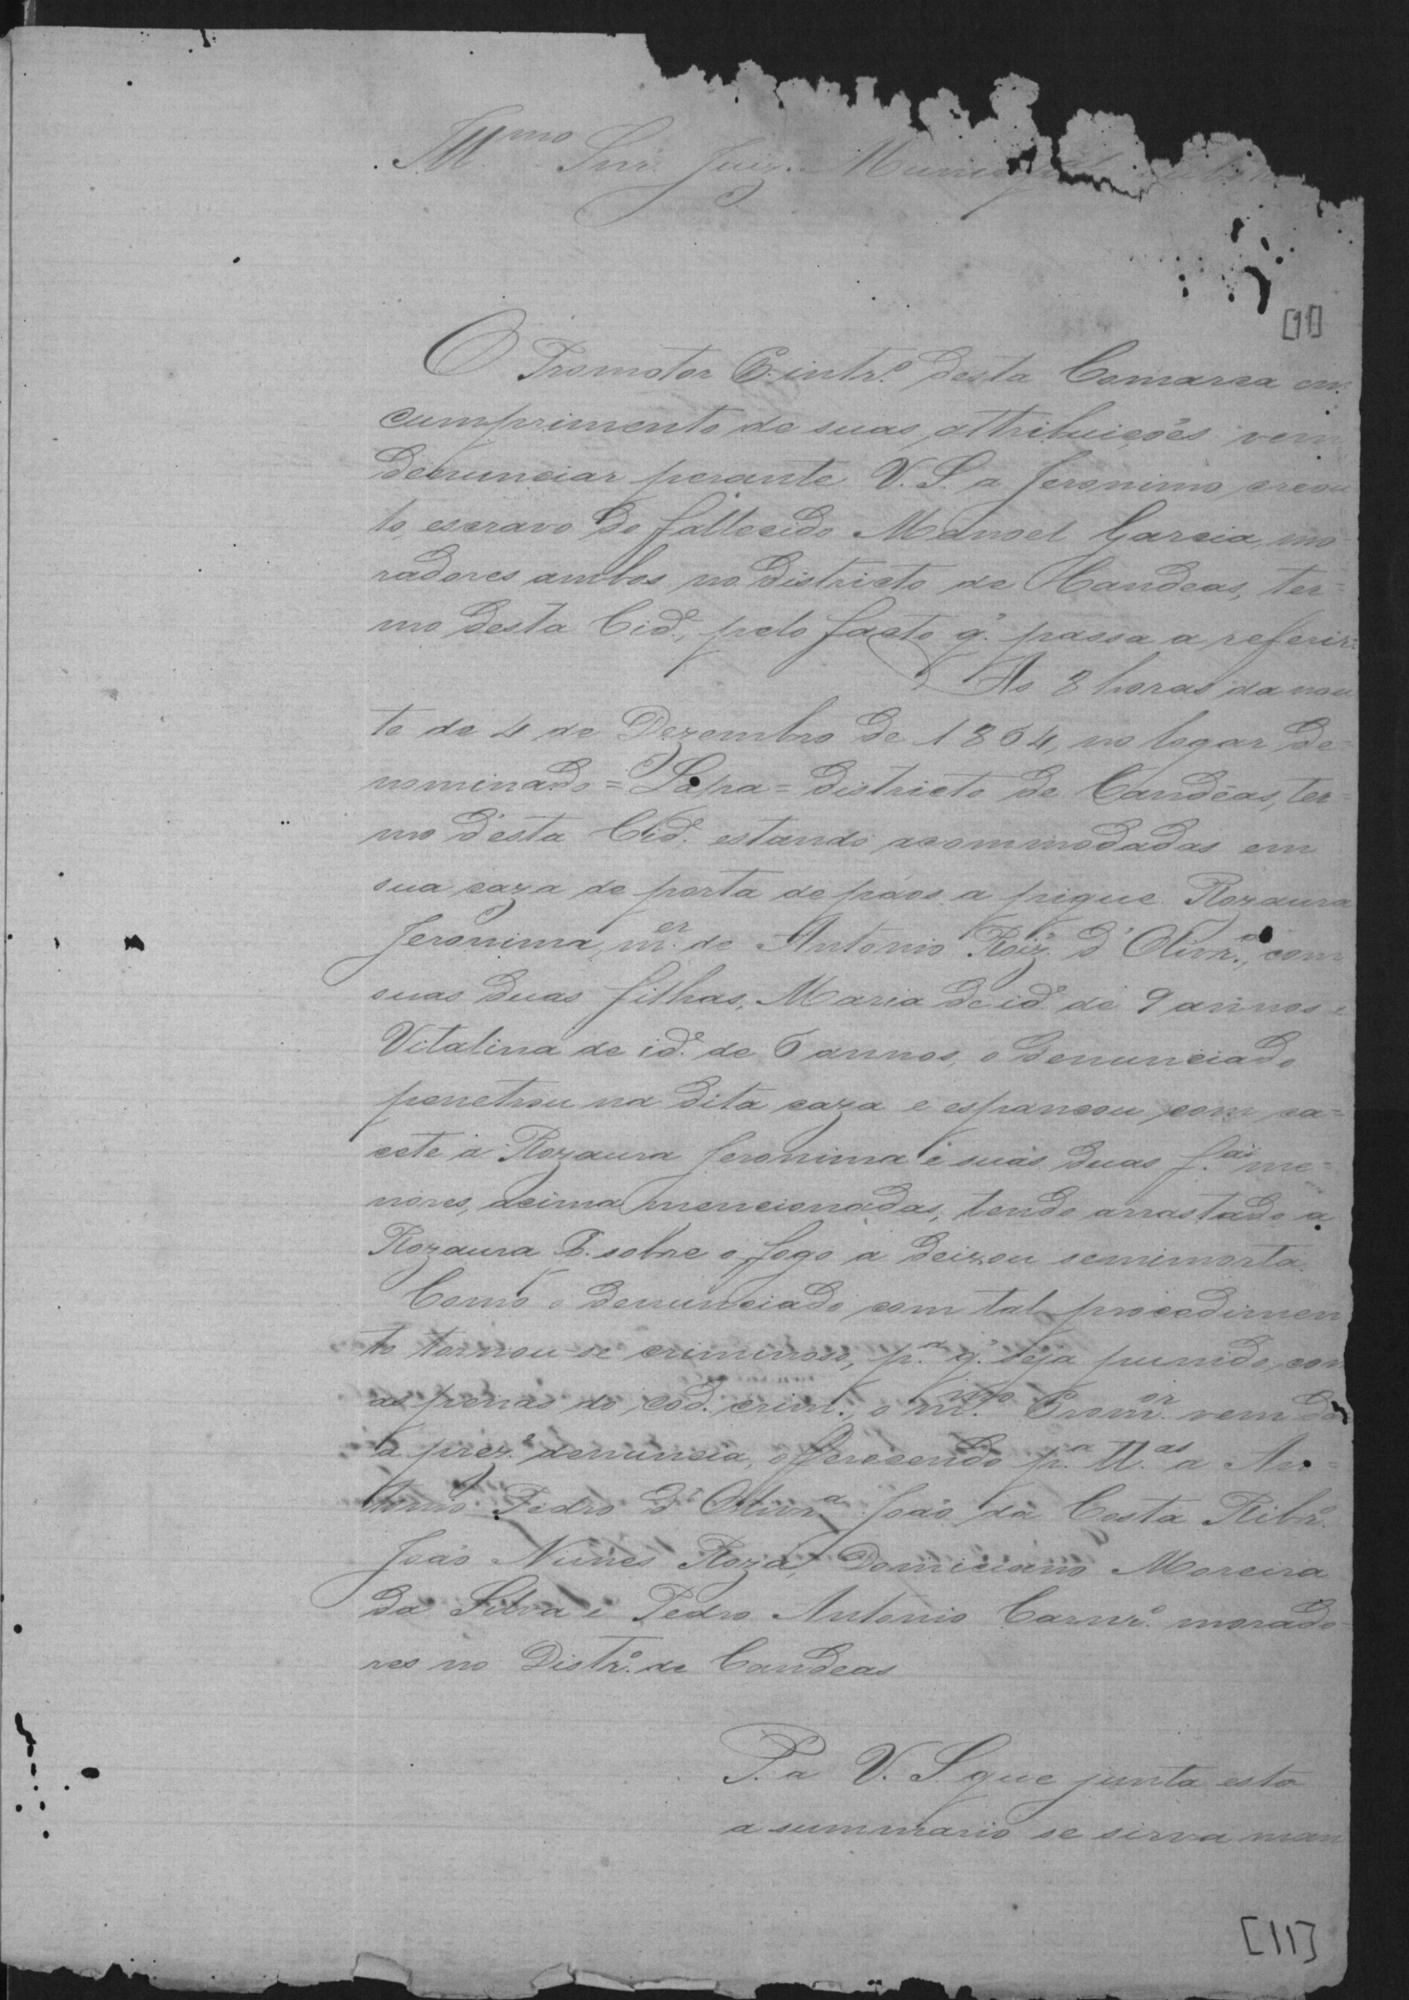 Illmo Snr. Juiz Municipal
[11]
O Promotor P. intr.º desta Comarca em
cumprimento de suas attribuições vem
denunciar perante V. S. a Jeronimo creou
lo, escravo do fallecido Manoel Garcia, mo
radores ambos no districto de Candeas, ter=
mo desta Cid.e, pelo facto q. passa a referir:
As 8 horas da nou
te de 4 de Dezembro de 1864, no logar de=
nominado = Lapa = districto de Candêas, ter=
mo d'esta Cid.e estando acommodadas em
sua caza de porta de páos a pique Rozaura
Jeronima, m.er de Antonio Roiz' d' Olivr.a, com
suas duas filhas, Maria de id.e de 9 annos e
Vitalina de id.e de 6 annos, o denunciado
penetrou na dita caza e espancou com ca=
cete a Rozaura Jeronima e suas duas f.as me=
nores, acima mencionadas, tendo arrastado a
Rozaura J. sobre o fogo a deixou semimorta.
Como o denunciado com tal procedimen
to tornou-se criminoso, p.a q. seja punido com
as penas do cod. crim., o m.mo Prom.or vem dar
a prez.e denuncia, offerecendo p.a tt.as a An=
tonio Pedro d' Olivr.a João da Costa Ribr.º
João Nunes Roza, Domiciano Moreira
da Silva e Pedro Antonio Carnr.º morado
res no Distr.º de Candeas
P. a V. S. que junta esta
a summario se sirva man
[11]